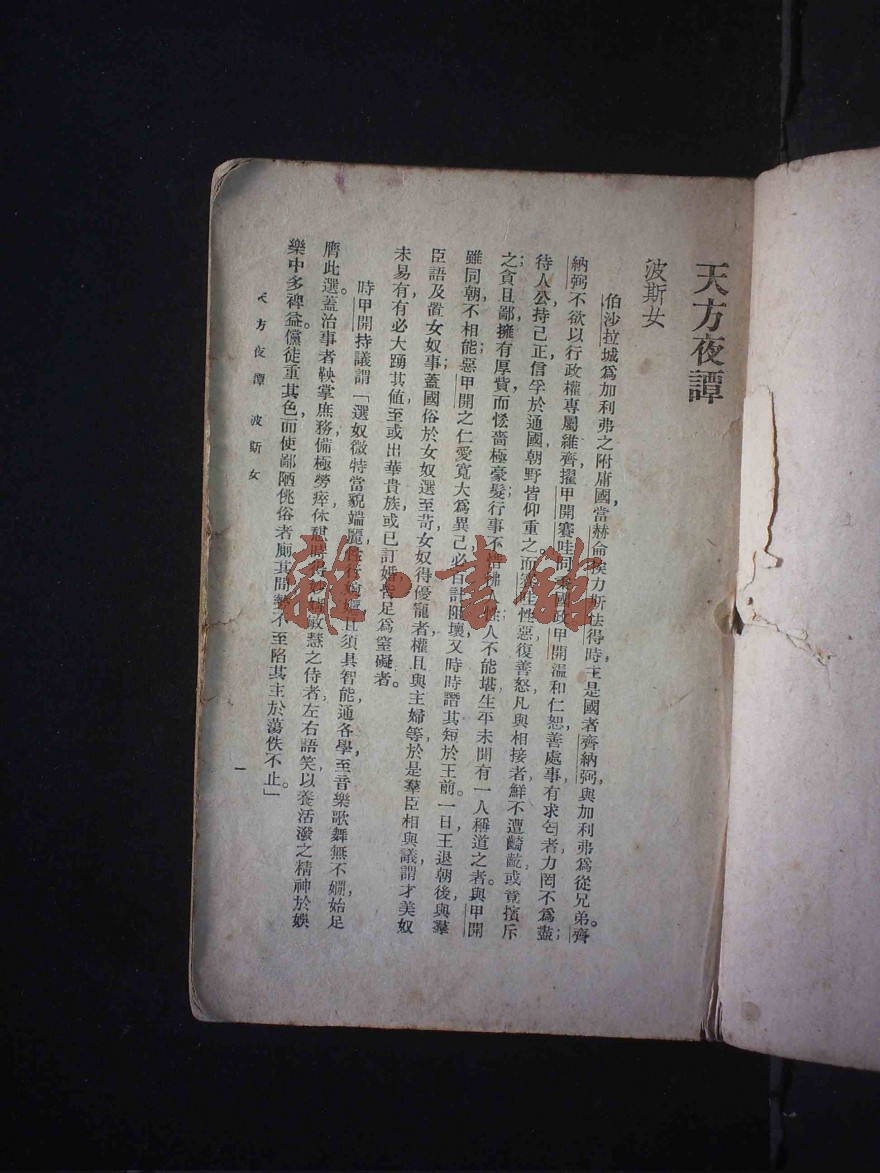 天方夜譚
波斯女
伯沙拉城爲加利弗之附庸國，當赫侖挨力斯怯得時，主是國者齊納弼，與加利弗爲從兄弟。齊
納弼不欲以行政權專屬維齊，擢甲開賽哇同秉國政，甲開溫和仁恕，善處事，有求匄者，力罔不爲盡；
待人公，持己正，信孚於通國，朝野皆仰重之。而賽哇性惡，復善怒，凡與相接者，鮮不遭齮齕，或竟擯斥
之；貪且鄙，擁有厚貲，而恡嗇極豪髮；行事不惜拂人性，人不能堪，生平未聞有一人稱道之者。與甲開
雖同朝，不相能；惡甲開之仁愛寬大爲異己，必百計阻壞，又時時譖其短於王前。一日，王退朝後，與羣
臣語及置女奴事；蓋國俗於女奴選至苛，女奴得優寵者，權且與主婦等，於是羣臣相與議，謂才美奴
未易有，有必大踴其値，至或出華貴族，或已訂婚，皆足爲窒礙者。
時甲開持議謂「選奴微特當貌端麗，性行婉嫕，且須具智能，通各學，至音樂歌舞無不嫺，始足
膺此選。蓋治事者鞅掌庶務，備極勞瘁，休憇時得 敏慧之侍者，左右語笑，以養活潑之精神，於娛
樂中多裨益。儻徒重其色，而使鄙陋佻俗者廁其間，勢不至陷其主於蕩佚不止。」
天方夜譚 波斯女
一
雜·書館